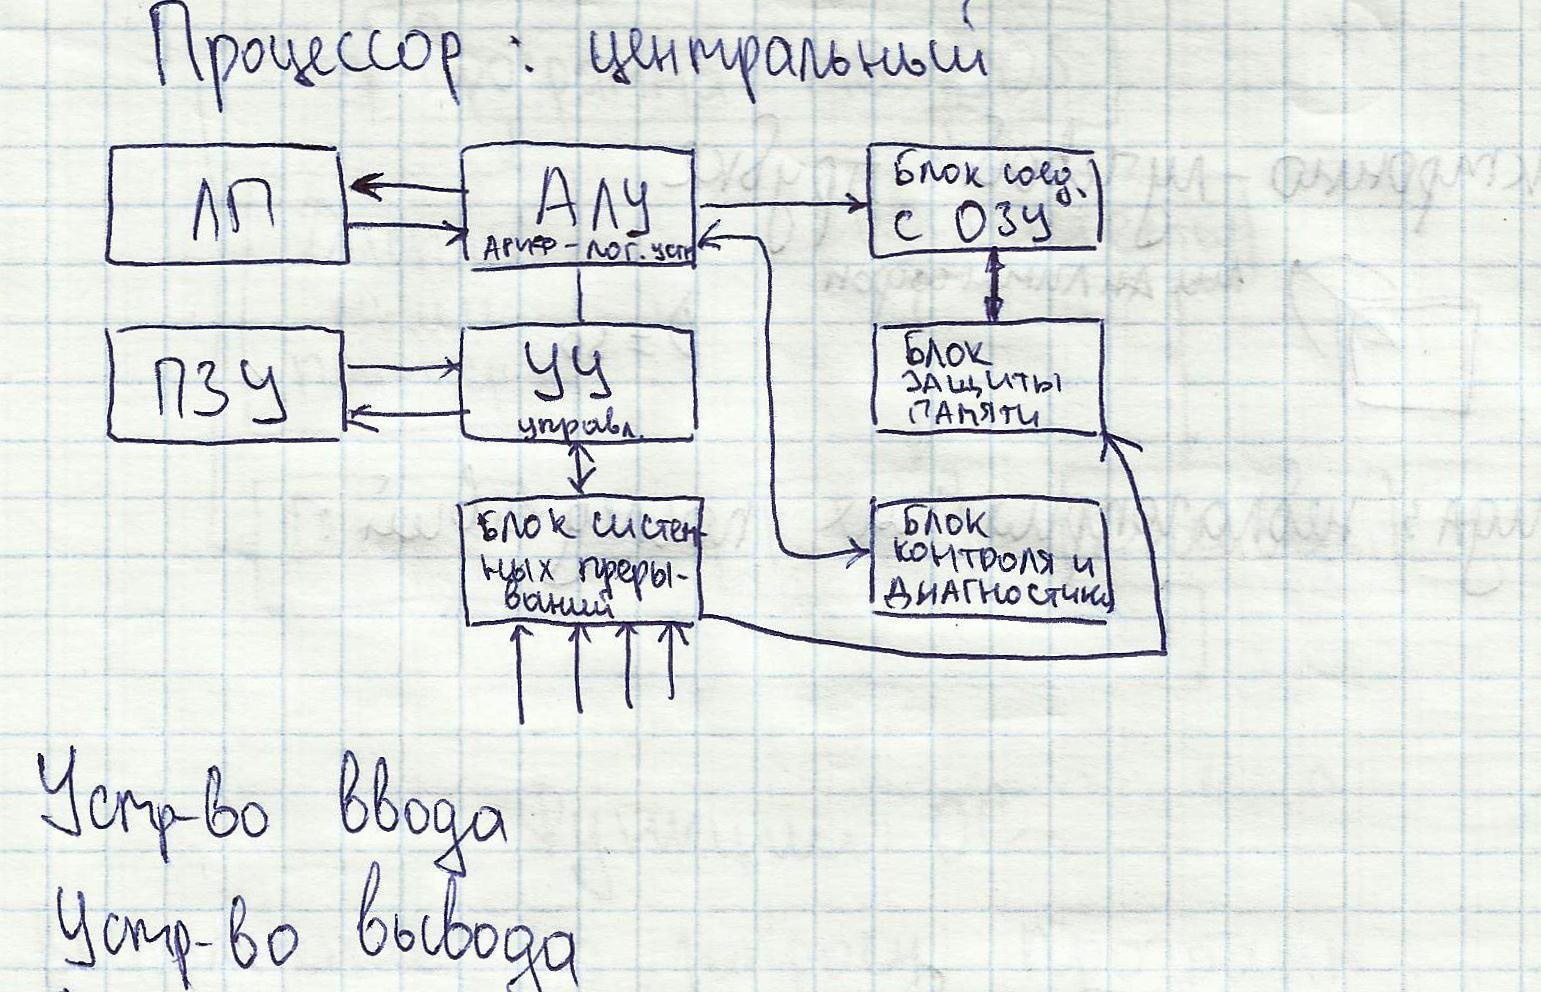 Процессор : центральный
ЛП
АЛУ
Ариф-лог. устр
Блок соед.
с ОЗУ
ПЗУ
УУ
управл.
Блок
защиты
памяти
Блок систем-
ных преры-
ваний
Блок
контроля и
диагностики
Устр-во ввода
Устр-во вывода